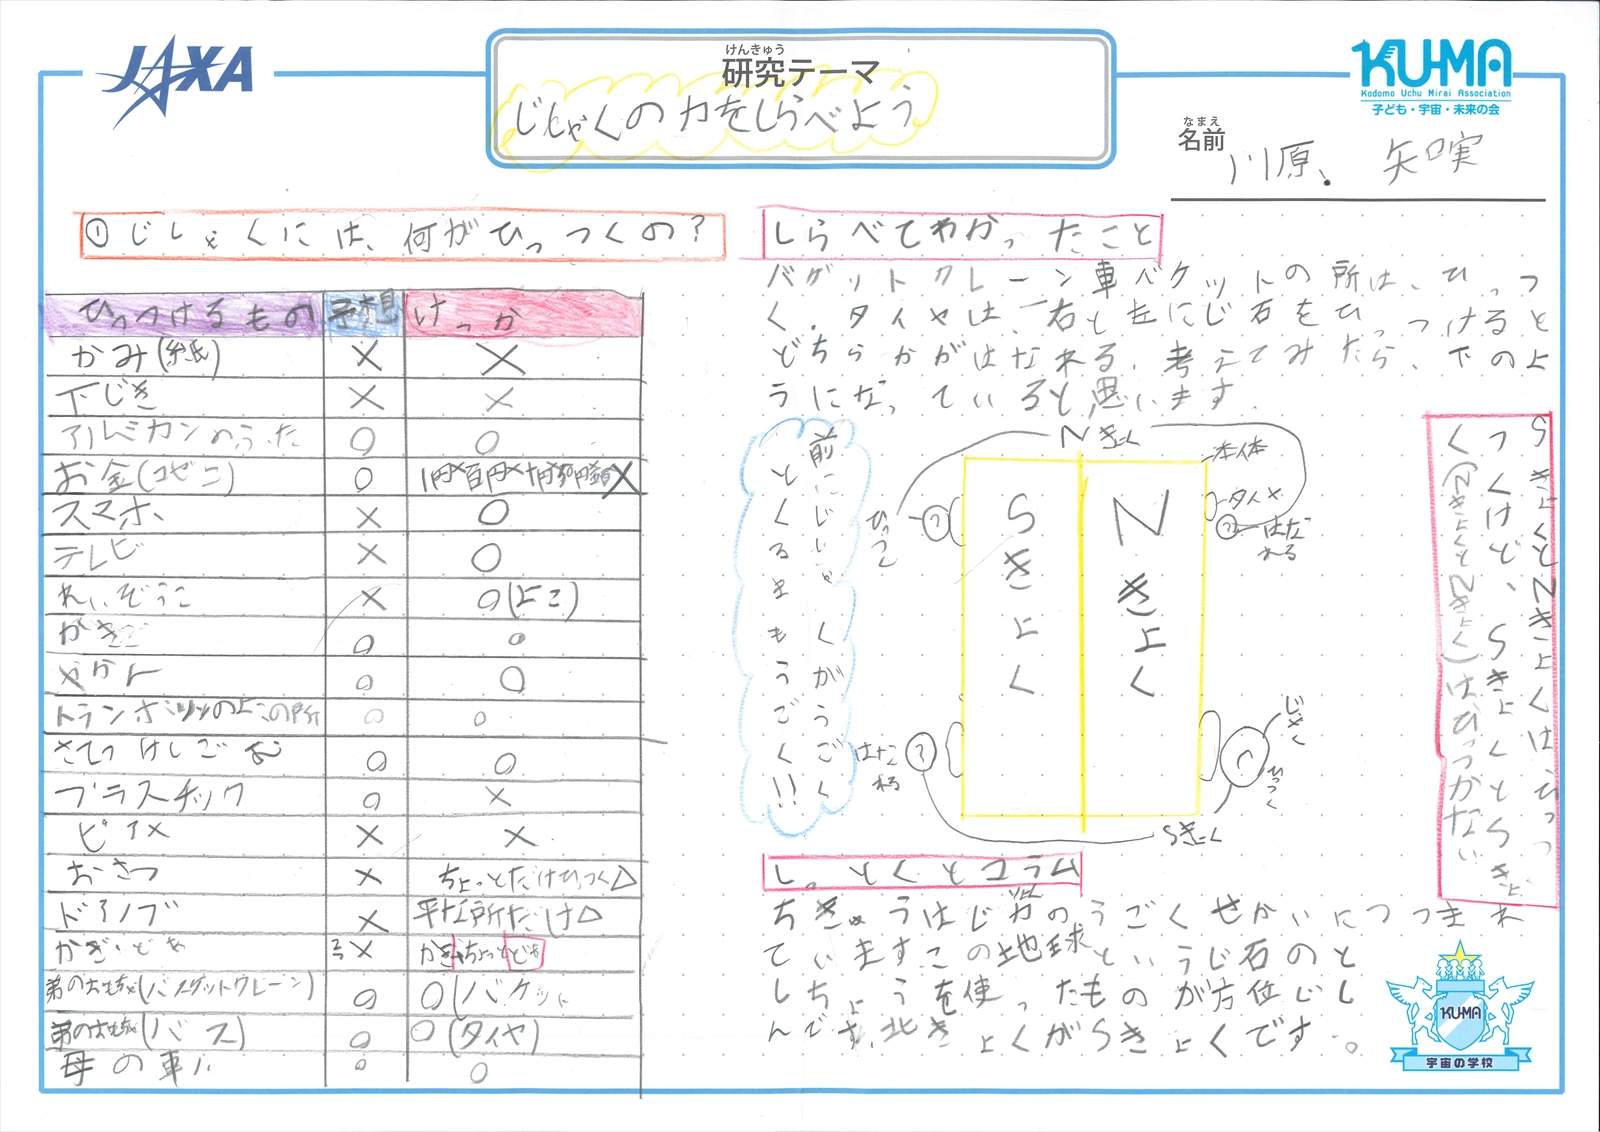 JAXA
けんきゅう
研究テーマ
じしゃくの力をしらべよう
KU-MA
Kodomo Uchu Mirai Association
子ども・宇宙・未来の会
なまえ
名前
川原、矢口実
①じしゃくには、何がひっつくの?
ひっつけるもの 予想 けっか
かみ(紙) × ×
下じき × ×
アルミカンのふた ○ ○
お金(コゼニ) ○ 1円×百円×十円
スマホ × ○
テレビ × ○
れいぞうこ × ○(よこ)
かぎ ○ ○
やかん ○ ○
トランポリンの上この所 ○ ○
さてつけしごむ ○ ○
プラスチック ○ ×
ピアス × ×
おさつ × ちょっとだけひっつく△
ドアノブ × 平な所だけ△
かぎ・どあ × かぎちょっとどあ
弟のおもちゃ(バスケットクレーン) ○ ○(バケット
弟のおもちゃ(バス) ○ ○(タイヤ)
母の車 ○ ○
しらべてわかったこと
バケットクレーン車バケットの所は、ひっつ
く。タイヤは、右と左にじ石をひっつけると
どちらかがはなれる。考えてみたら、下のよ
うになっていると思います。
前にじしゃくがうごく
とくるまもうごく!!
Nきょく
本体
タイヤ
?
はなれる
ひっつく
?
Sきょく
Nきょく
?
はなれる
じしゃく
ひっつく
Sきょく
SきょくとNきょくはひっ
つくけど、SきょくとSきょ
く(NきょくとNきょく)はひっつかない
しっとくとコラム
ちきゅうはじ力のうごくせかいにつつまれ
ていますこの地球というじ石のと
しちょうを使ったものが方位じし
んです。北きょくがSきょくです。
KU-MA
宇宙の学校